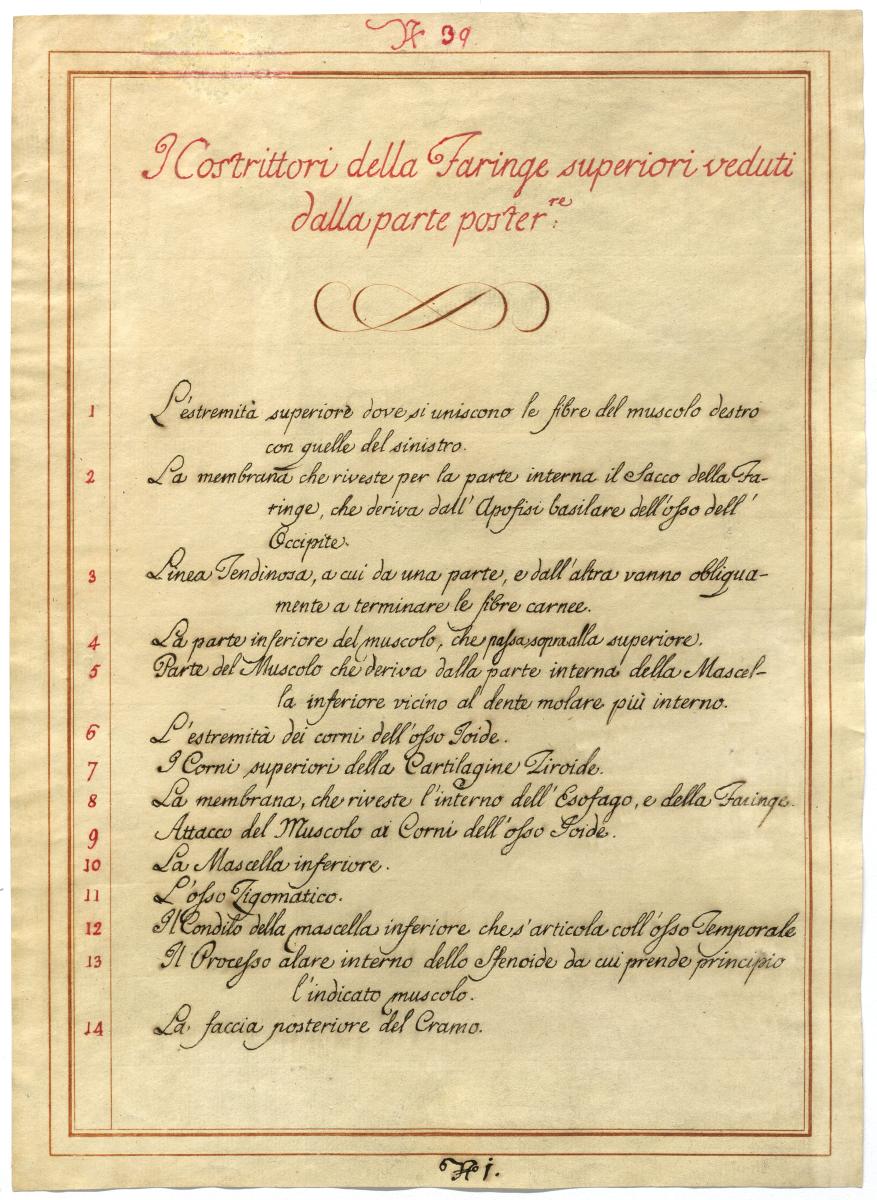 N 39
I Costrittori della Faringe superiori veduti
dalla parte poster:re
1 L'estremità superiore dove si uniscono le fibre del muscolo destro
con quelle del sinistro.
2 La membrana che riveste per la parte interna il Sacco della Fa-
ringe, che deriva dall'Apofisi basilare dell'osso dell'
Occipite.
3 Linea Tendinosa, a cui da una parte, e dall'altra vanno obliqua-
mente a terminare le fibre carnee.
4 La parte inferiore del muscolo, che passa sopra alla superiore.
5 Parte del Muscolo che deriva dalla parte interna della Mascel-
la inferiore vicino al dente molare più interno.
6 L'estremità dei corni dell'osso Joide.
7 I Corni superiori della Cartilagine Tiroide.
8 La membrana, che riveste l'interno dell'Esofago, e della Faringe.
9 Attacco del Muscolo ai Corni dell'osso Joide.
10 La Mascella inferiore.
11 L'osso Zigomatico.
12 Il Condilo della mascella inferiore che s'articola coll'osso Temporale
13 Il Processo alare interno dello Sfenoide da cui prende principio
l'indicato muscolo.
14 La faccia posteriore del Cranio.
No 1.